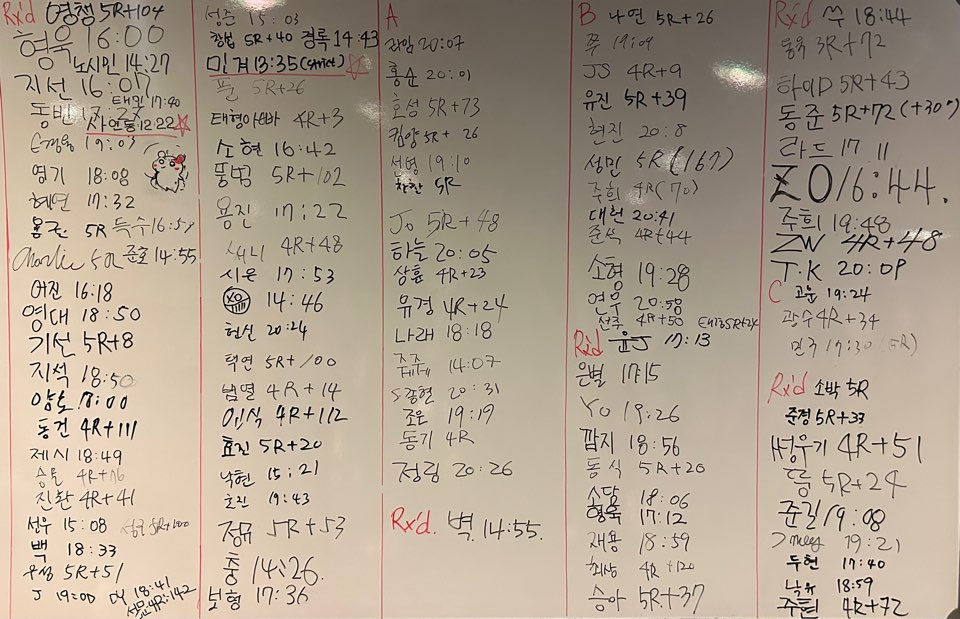 Rx'd 영챙 5R+104
형욱 16:00
노시민 14:27
지선 16:07
태민 17:40
동빈 17:27
사연동 12:22
19:03
영기 18:08
혜연 17:32
용군 5R 득수 16:59
Charlie 5R 준호 14:55
어진 16:18
영대 18:50
기선 5R+8
지석 18:50
양호 17:00
동건 4R+111
제시 18:49
승은 4R+76
진환 4R+41
선우 15:08
백 18:33
우성 5R+51
J 19:00 DY 18:41
4R+142
성준 15:03
창섭 5R+40 경록 14:43
민겨 13:35 (strict)
풀 5R+26
태형아빠 4R+3
소현 16:42
뚱범 5R+102
용진 17:22
새니 4R+48
시온 17:53
XO 14:46
헌신 20:24
택연 5R+100
범열 4R+14
임식 4R+112
효진 5R+20
낙현 15:21
호진 19:43
정뮤 5R+53
충 14:26
보형 17:36
A
라임 20:07
홍순 20:01
효성 5R+73
킴양 5R+26
선범 19:10
찬찬 5R
Jo 5R+48
하늘 20:05
상훈 4R+23
유경 4R+24
나래 18:18
쥬쥬 14:07
S종현 20:31
조은 19:19
동기 4R
정림 20:26
Rx'd. 벽. 14:55.
B 나연 5R+26
쭈 19:09
JS 4R+9
유진 5R+39
현진 20:8
성민 5R(167)
주희 4R(70)
대헌 20:41
준석 4R+44
소형 19:28
연우 20:58
선주 4R+50 태경5R+24
Rx'd 윤J 17:13
은별 17:15
YO 19:26
깜지 18:56
동식 5R+20
소담 18:06
형욱 17:12
재용 18:59
희상 4R+120
승아 5R+37
Rx'd 쑤 18:44
동욱 3R+72
하이D 5R+43
동준 5R+72(+30")
라드 17 11
ZO 16:44.
주희 19:48
ZW 4R+48
T.K 20:09
C 고운 19:24
광수 4R+34
민주 17:30 (5R)
Rx'd 소박 5R
준경 5R+33
써니기 4R+51
뚱 5R+24
준길 19:08
Jmey 19:21
두헌 17:40
낙유 18:59
주현 4R+72